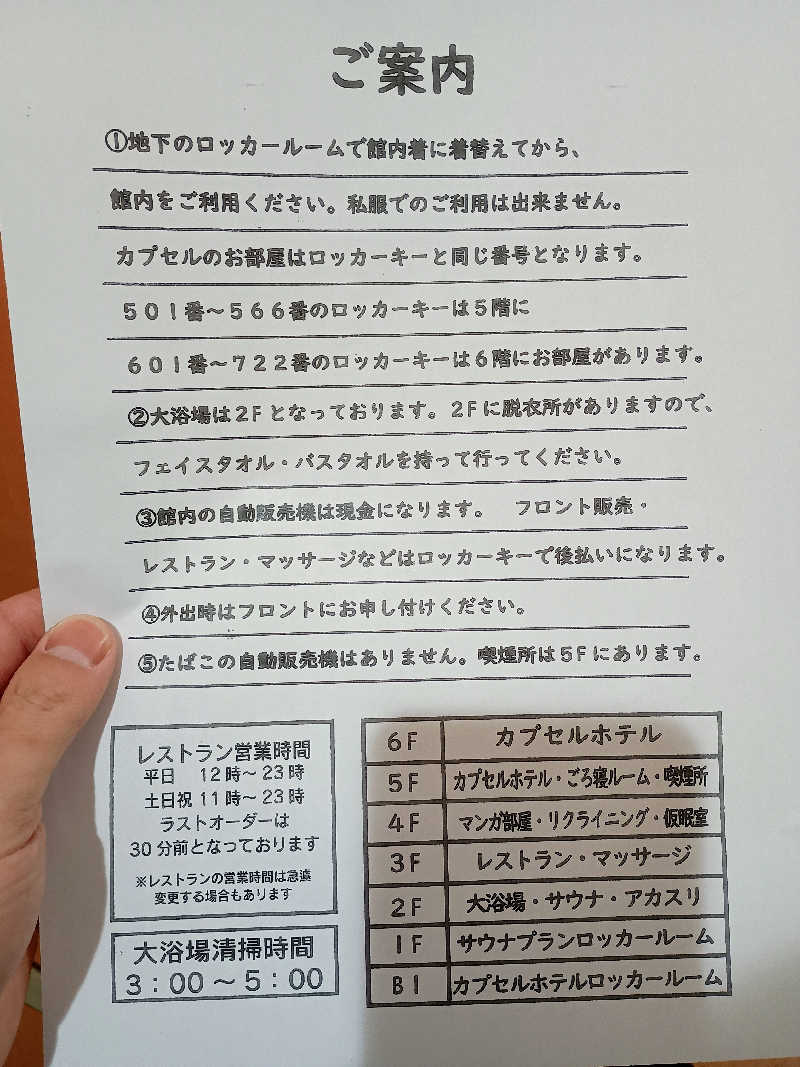 ご案内
①地下のロッカールームで館内着に着替えてから、
館内をご利用ください。私服でのご利用は出来ません。
カプセルのお部屋はロッカーキーと同じ番号となります。
501番～566番のロッカーキーは5階に
601番～722番のロッカーキーは6階にお部屋があります。
②大浴場は2Fとなっております。2Fに脱衣所がありますので、
フェイスタオル・バスタオルを持って行ってください。
③館内の自動販売機は現金になります。　フロント販売・
レストラン・マッサージなどはロッカーキーで後払いになります。
④外出時はフロントにお申し付けください。
⑤たばこの自動販売機はありません。喫煙所は5Fにあります。
レストラン営業時間
平日　12時～23時
土日祝 11時～23時
ラストオーダーは
30分前となっております
※レストランの営業時間は急遽
変更する場合もあります
大浴場清掃時間
3：00～5：00
6F カプセルホテル
5F カプセルホテル・ごろ寝ルーム・喫煙所
4F マンガ部屋・リクライニング・仮眠室
3F レストラン・マッサージ
2F 大浴場・サウナ・アカスリ
1F サウナプランロッカールーム
B1 カプセルホテルロッカールーム